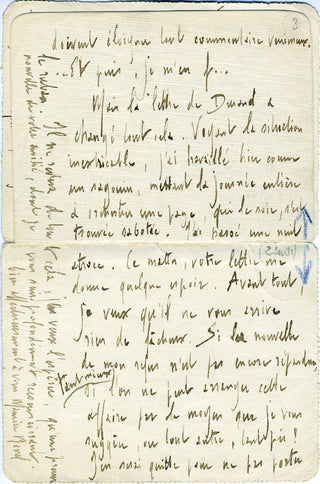 3
doivent éloigner tout commentaire venimeux.
Et puis, je m'en f...
Mais la lettre de Durand a
changé tout cela. Voyant la situation
inextricable, j'ai travaillé hier comme
un sagouin, mettant la journée entière
à une page, qui, le soir, s'est
trouvée sabotée. J'ai passé une nuit
atroce. Ce matin, votre lettre me
donne quelque espoir. Avant tout,
je veux qu'il ne vous arrive
rien de fâcheux. Si la nouvelle
de mon refus n'est pas encore répandue,
tant mieux
si l'on ne peut arranger cette
affaire par le moyen que je vous
suggère, ou tout autre, tant pis !
J'en serai quitte pour ne pas porter
le ruban. Il me restera de tout cela, je veux l'espérer, qu'une preuve
nouvelle de votre amitié, dont je vous suis profondément reconnaissant.
bien affectueusement à vous Maurice Ravel